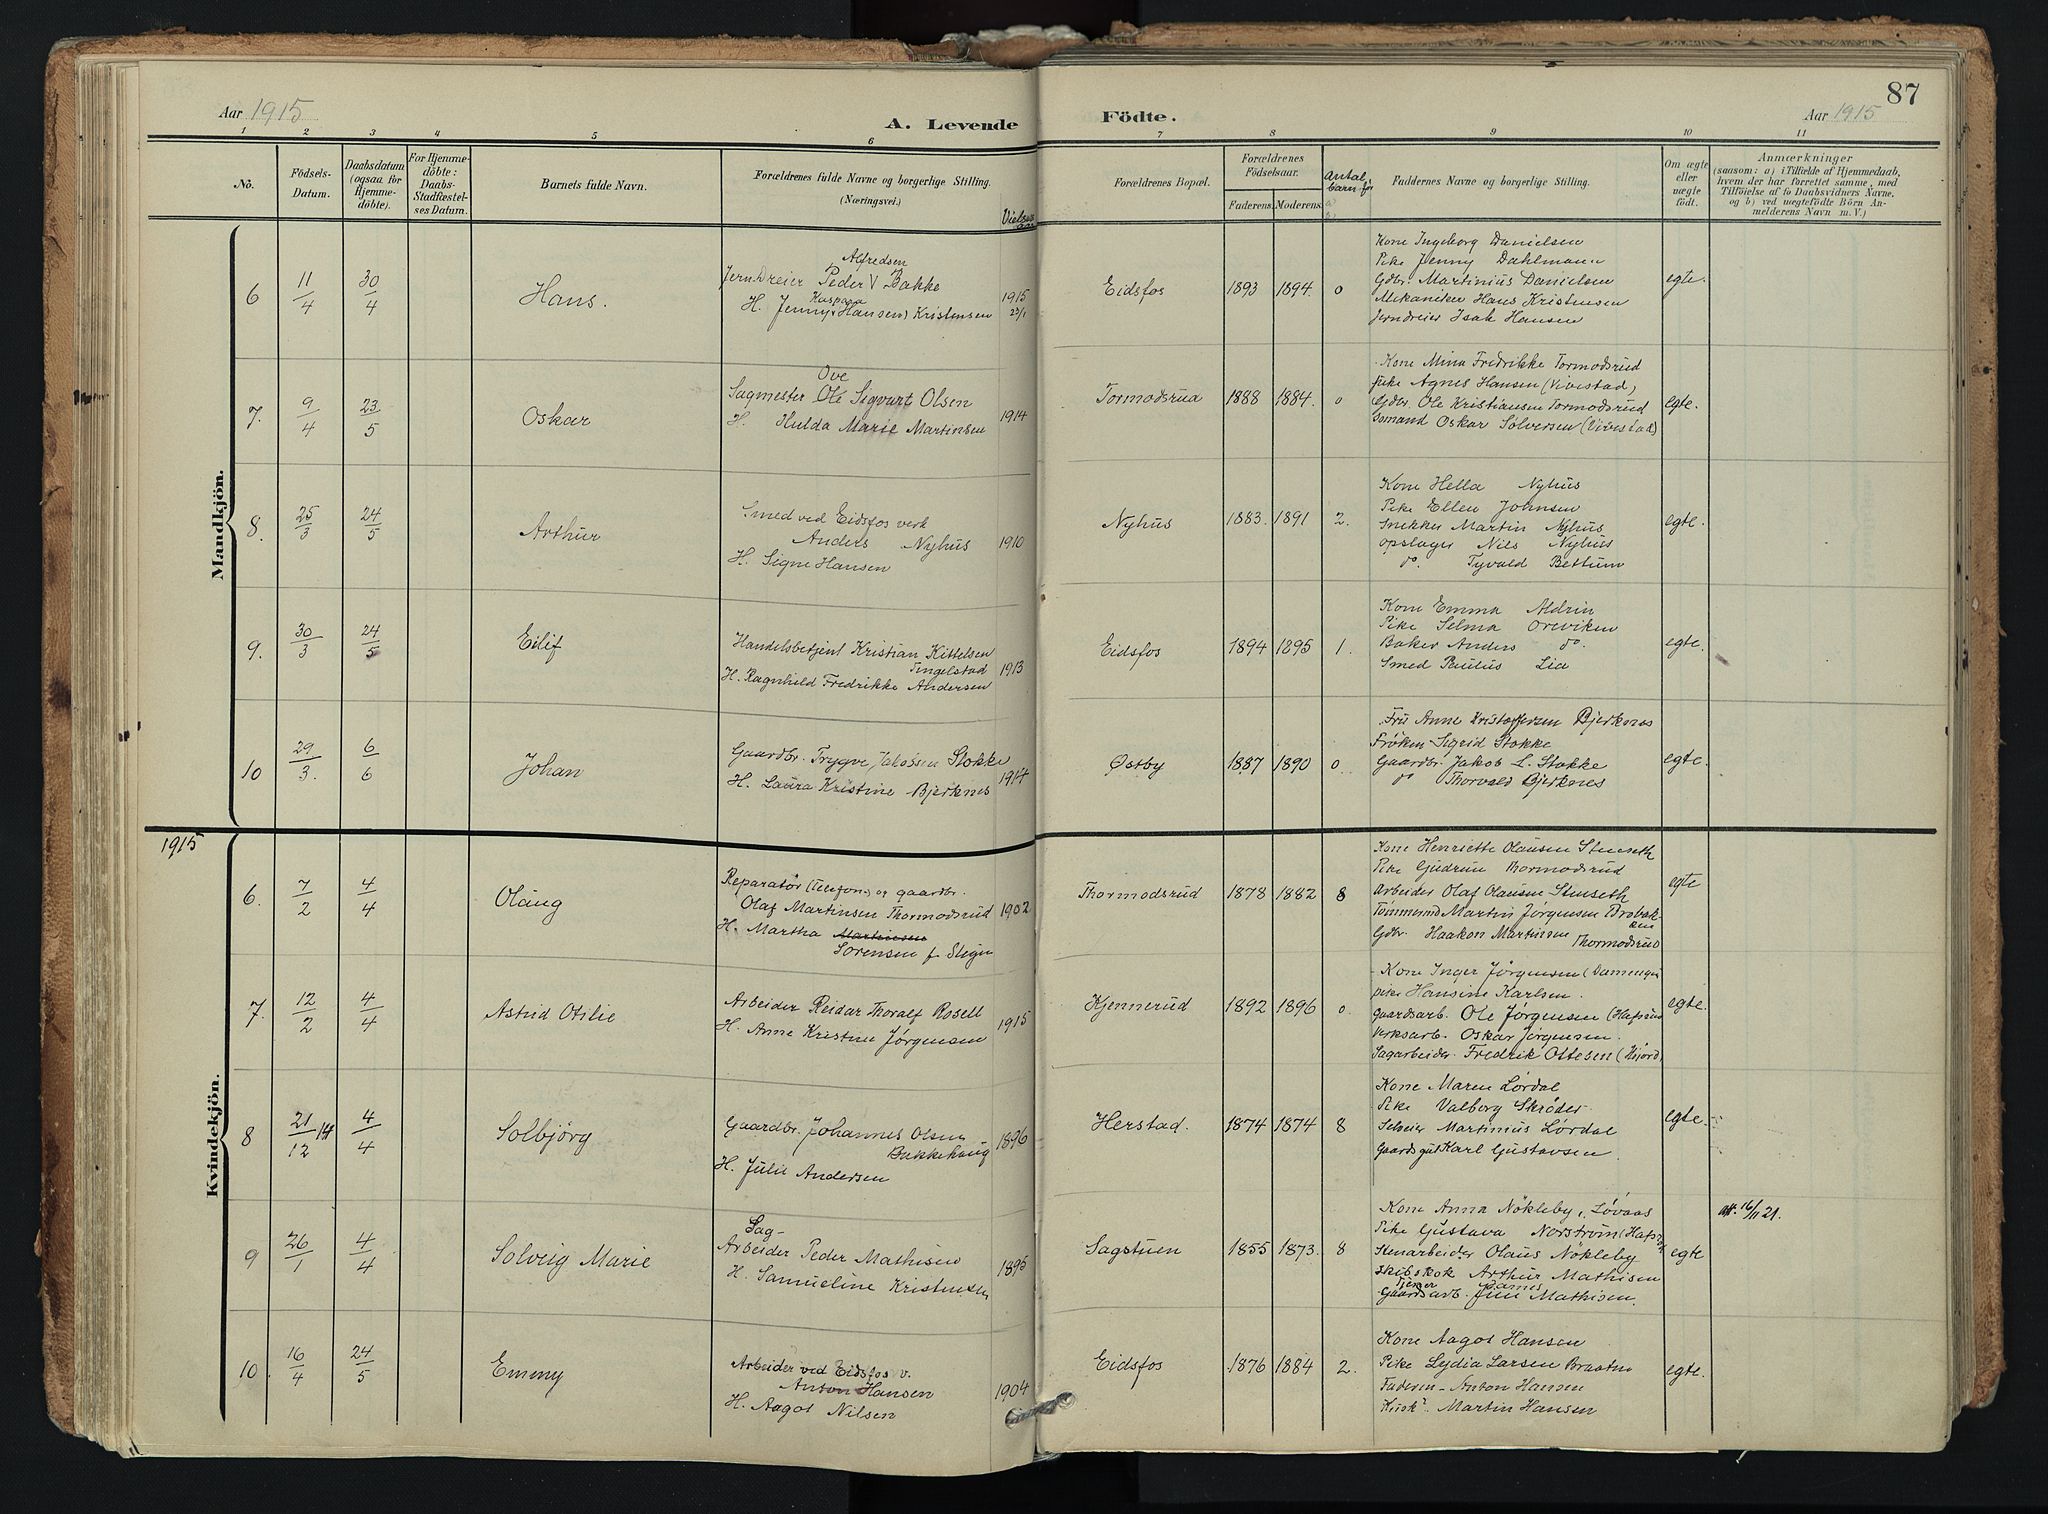 87
Aar 1915
A. Levende Födte.
Aar 1915
1 2 3 4 5 6 7 8 9 10 11
No.
Födsels-Datum.
Daabsdatum (ogsaa for Hjemme-döbte).
For Hjemme-döbte: Daabs-Stadfæstel-ses Datum.
Barnets fulde Navn.
Forældrenes fulde Navne og borgerlige Stilling.
(Næringsvei.)
Vielses
Forældrenes Bopæl.
Forældrenes Födselsaar.
Faderens. Moderens.
Antal barn før
Faddernes Navne og borgerlige Stilling.
Om ægte eller uægte födt.
Anmærkninger
(saasom: a) i Tilfælde af Hjemmedaab,
hvem der har forrettet samme, med
Tilföielse af to Daabsvidners Navne,
og b) ved uægtefödte Börn An-
melderens Navn m. V.)
Mandkjön.
6 11/4 30/4 Hans.
Alfredsen
Jerndreier Peder V Bakke
Kaspara
H. Jenny (Hansen) Kristensen 1915 23/1
Eidsfos 1893 1894. 0
Kone Ingeborg Danielsen
Pike Jenny Dahlmann
Gdbr. Martinius Danielsen
Mekaniker Hans Kristensen
Jerndreier Isak Hansen
egte.
7. 9/4 23/5 Oskar
Ove
Sagmester Ole Sigvart Olsen
H. Hulda Marie Martinsen 1914
Tormodsrud 1888 1884. 0
Kone Mina Fredrikke Tormodsrud
pike Agnes Hansen (Vivestad)
Gdbr. Ole Kristiansen Tormodsrud
Oskar Solversen (Vivestad)
egte.
8. 25/3 24/5 Arthur
Smed ved Eidsfos verk
Anders Nyhus 1910
H. Signe Hansen
Nyhus 1883. 1891 2.
Kone Hella Nyhus
Pike Ellen Johnsen
Snekker Martin Nyhus
opslager Nils Nyhus
do. Tyvald Bettum
egte.
9. 30/3 24/5 Eilif
Handelsbetjent Kristian Kittelsen
Tingelstad 1913
H. Ragnhild Fredrikke Andersen
Eidsfos 1894 1895 1.
Kone Emma Aldrin
Pike Selma Oreviken
Baker Anders do.
Smed Paulus Lia
egte.
10 29/3. 6/6 Johan
Gaardbr. Trygve Jakobsen Stokke
H. Laura Kristine Bjerknes 1914
Østby 1887 1890 0.
Fru Anne Kristoffersen Bjerknes
Frøken Sigrid Stokke
Gaardbr. Jakob L. Stokke
do Thorvald Bjerknes
egte.
1915
Kvindekjön.
6. 7/2 4/4 Olaug
Reparatør (Telefon) og gaardbr.
Olaf Martinsen Thormodsrud 1902
H. Martha Martinsen
Sørensen f.
Thormodsrud 1878 1882 8
Kone Henriette Olausen Stenseth
Pike Gudrun Thormodsrud
Arbeider Olaf Olausen Stenseth
Tømmermd Martin Jørgensen Brobak-
ken
Gdbr. Haakon Martinsen Thormodsrud
egte
7. 12/2 4/4 Astrid Otilie
Arbeider Reidar Thoralf Rosell
H. Anne Kristine Jørgensen 1915
Kjennerud 1892 1896 0.
Kone Inger Jørgensen
pike Hansine Karlsen.
Gaardsarb. Ole Jørgensen
Verksarb. Oskar Jørgensen.
Sagarbeider. Fredrik Ottesen
egte.
8 21/12 14 4/4 Solbjörg
Gaardbr. Johannes Olsen
Bakkehaug 1896
H. Julie Andersen
Herstad. 1874 1874 8
Kone Maren Lørdal
Pike Valborg Skrøder
Selveier Martinius Lørdal
Gaardsgut Karl Gustavsen.
egte.
9 26/1 4/4 Solveig Marie
Sag-
Arbeider Peder Mathisen
H. Samueline Kristensen 1895
Sagstuen 1855 1873. 8
Kone Anna Nökleby, Løvaas
Pike Gustava Norstrøm
Stenarbeider Olaus Nökleby
Skibskok Arthur Mathisen
Gaardsarb. Mathisen.
egte
att. 16/11 21.
10. 16/4 24/5 Emmy
Arbeider ved Eidsfos v.
Anton Hansen 1904
H. Aagot Nilsen
Eidsfos 1876 1884 2.
Kone Aagot Hansen
Pike Lydia Larsen Braaten
Faderen - Anton Hansen
Kusk Martin Hansen
egte.